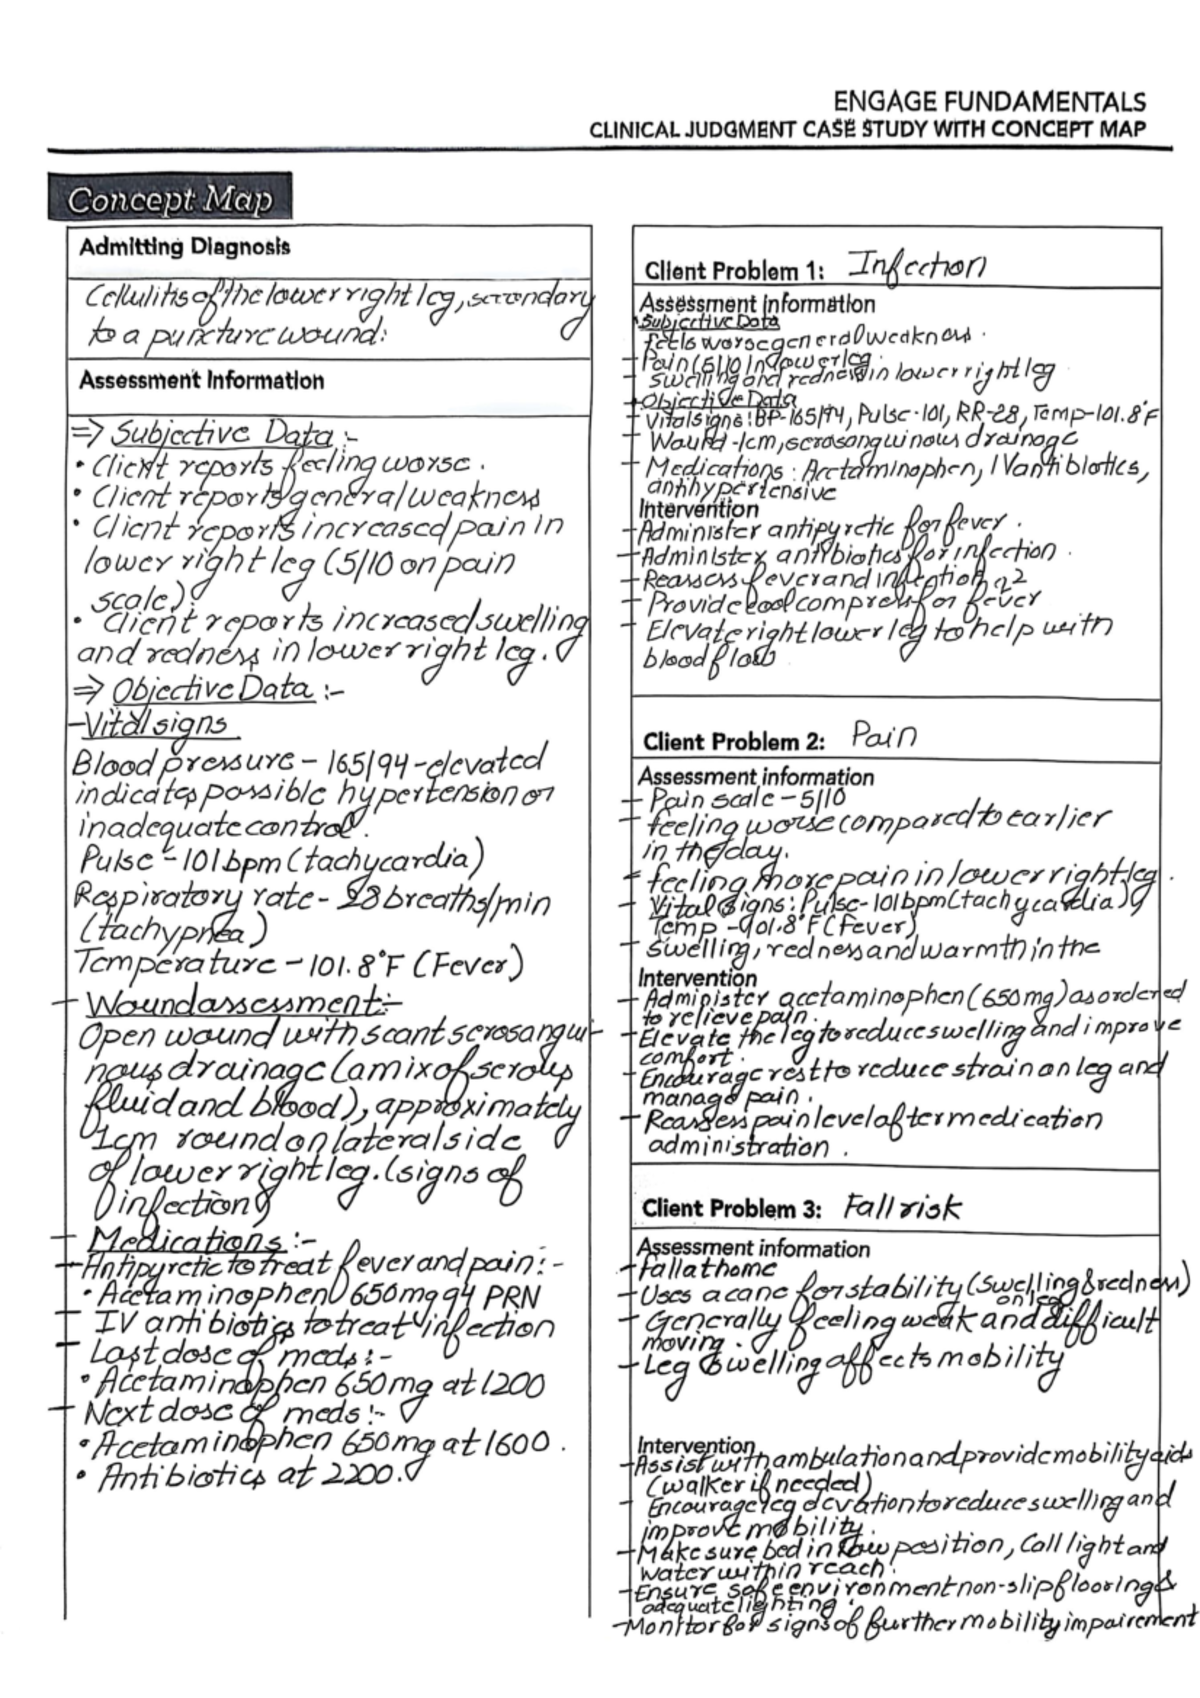 ENGAGE FUNDAMENTALS
CLINICAL JUDGMENT CASE STUDY WITH CONCEPT MAP
Concept Map
Admitting Diagnosis
Cellulitis of the lower right leg, secondary
to a puncture wound:
Assessment Information
=> Subjective Data :-
• Client reports feeling worse.
• Client reports general weakness
• Client reports increased pain in
lower right leg (5/10 on pain
scale)
• Client reports increased swelling
and redness in lower right leg.
=> Objective Data :-
- Vital signs
Blood pressure - 165/94 - elevated
indicates possible hypertension or
inadequate control.
Pulse - 101 bpm (tachycardia)
Respiratory rate - 28 breaths/min
(tachypnea)
Temperature - 101.8°F (Fever)
- Wound assessment:-
Open wound with scant serosangui-
nous drainage (a mix of serous
fluid and blood), approximately
1cm round on lateral side
of lower right leg. (signs of
infection)
- Medications :-
- Antipyretic to treat fever and pain :-
• Acetaminophen 650mg q4 PRN
- IV antibiotics to treat infection
- Last dose of meds :-
• Acetaminophen 650mg at 1200
- Next dose of meds :-
• Acetaminophen 650mg at 1600.
• Antibiotics at 2200.
Client Problem 1: Infection
Assessment information
• Subjective Data
feels worse general weakness.
- Pain (5/10) in lower leg.
- Swelling and redness in lower right leg
• Objective Data
- Vital signs: BP-165/94, Pulse-101, RR-28, Temp-101.8°F
- Wound-1cm, serosanguinous drainage
- Medications: Acetaminophen, IV antibiotics,
antihypertensive
Intervention
- Administer antipyretic for fever.
- Administer antibiotics for infection.
- Reassess fever and infection q2
- Provide cool compress for fever
- Elevate right lower leg to help with
blood flow
Client Problem 2: Pain
Assessment information
- Pain scale - 5/10
- feeling worse compared to earlier
in the day.
- feeling more pain in lower right leg.
- Vital signs: Pulse-101bpm (tachycardia)
Temp - 101.8°F (Fever)
- Swelling, redness and warmth in the
Intervention
- Administer acetaminophen (650mg) as ordered
to relieve pain.
- Elevate the leg to reduce swelling and improve
comfort.
- Encourage rest to reduce strain on leg and
manage pain.
- Reassess pain level after medication
administration.
Client Problem 3: Fall risk
Assessment information
- Fall at home
- Uses a cane for stability (swelling & redness)
on leg
- Generally feeling weak and difficult
moving.
- Leg swelling affects mobility
Intervention
- Assist with ambulation and provide mobility aids
(walker if needed)
- Encourage leg elevation to reduce swelling and
improve mobility.
- Make sure bed in low position, Call light and
water within reach.
- Ensure safe environment non-slip flooring &
adequate lighting.
- Monitor for signs of further mobility impairment